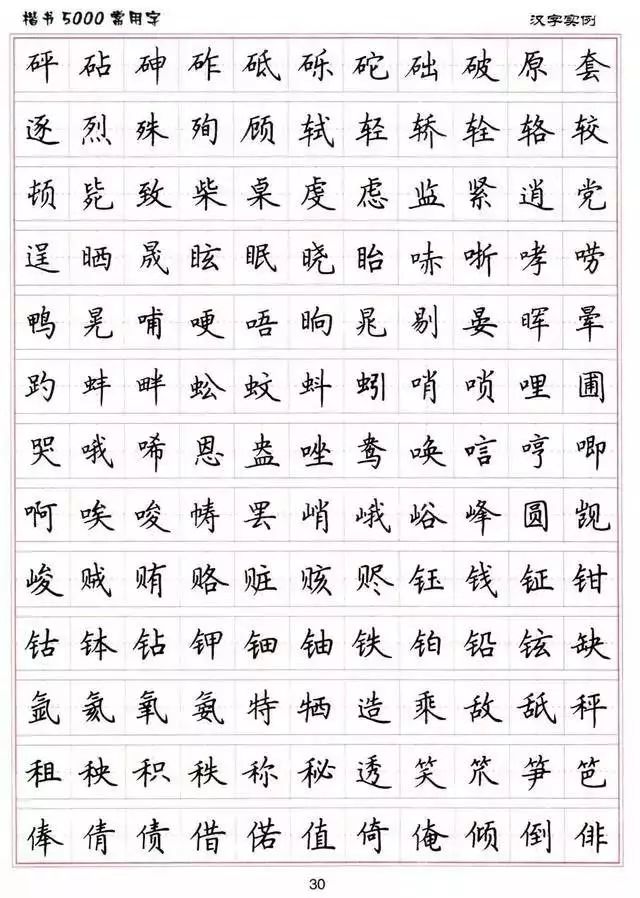 楷书5000常用字 汉字实例
砰砧砷砟砥砾砣础破原套
逐烈殊殉顾轼轻轿辁辂较
顿毙致柴桌虔虑监紧逍党
逞晒晟眩眠晓眙哧哳哮唠
鸭晃哺哽唔晌晁剔晏晖晕
趵蚌畔蚣蚊蚪蚓哨唢哩圃
哭哦唏恩盎唑鸯唤唁哼唧
啊唉唆帱罢峭峨峪峰圆觊
峻贼贿赂赃赅赆钰钱钲钳
钴钵钻钾钿铀铁铂铅铉缺
氩氦氧氨特牺造乘敌舐秤
租秧积秩称秘透笑笊笋笆
俸倩债借偌值倚俺倾倒俳
30